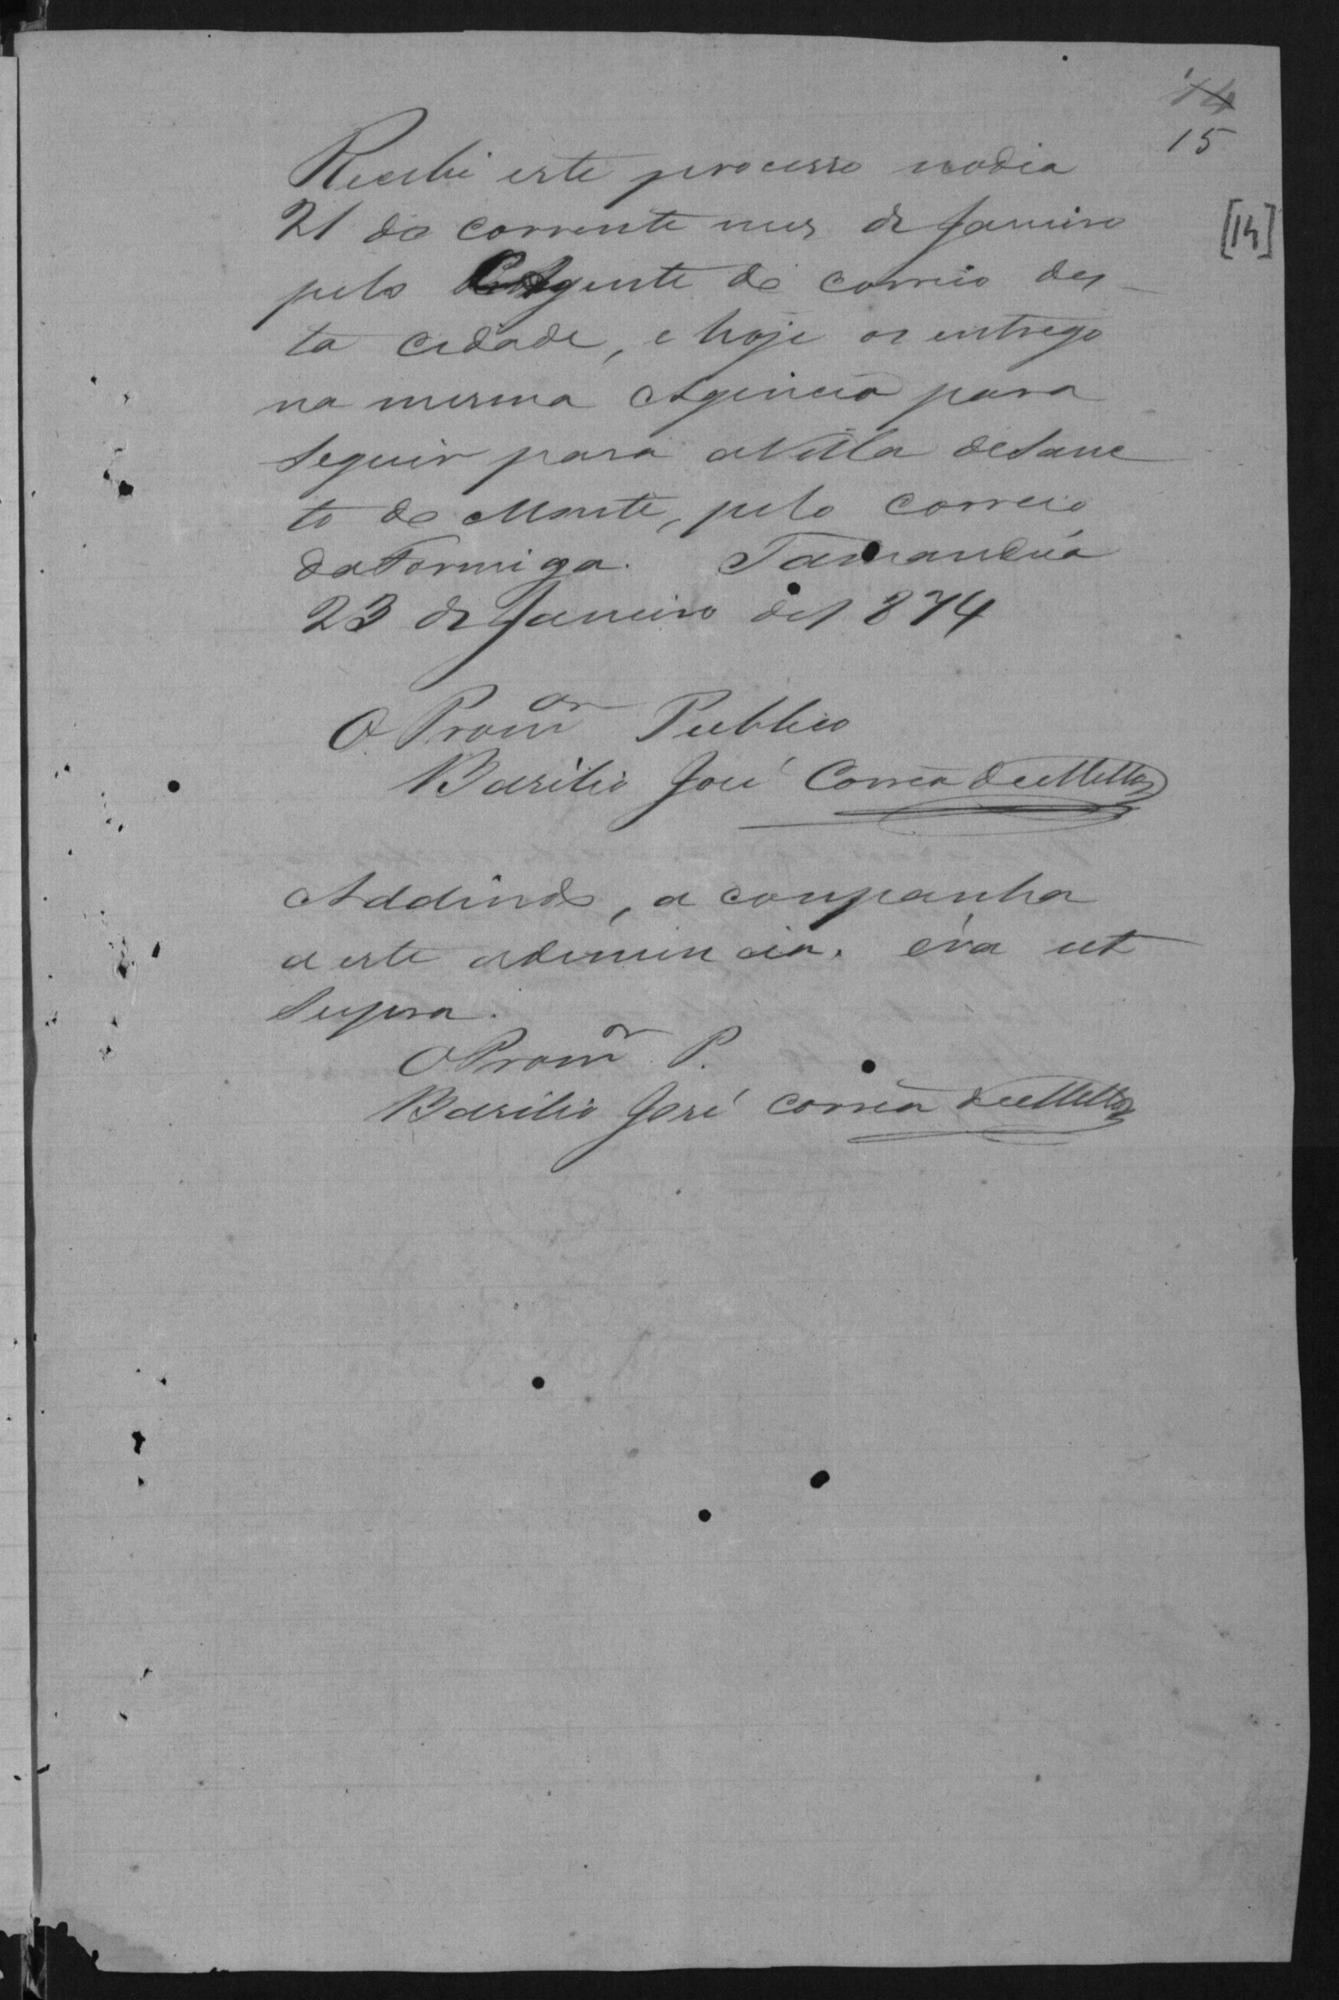 14
15
[14]
Recebi este processo no dia
21 do corrente mes de Janeiro
pelo Agente do correio des-
ta cidade, e hoje os entrego
na mesma Agencia para
seguir para a Villa de Sanc
to do Monte, pelo correio
da Formiga. Tamanduá
23 de Janeiro de 1874
O Promor Publico
Basilio José Corrêa de Mello
Addindo, a companha
a este a denuncia. éra ut
supra.
O Promor P.
Basilio José Corrêa de Mello